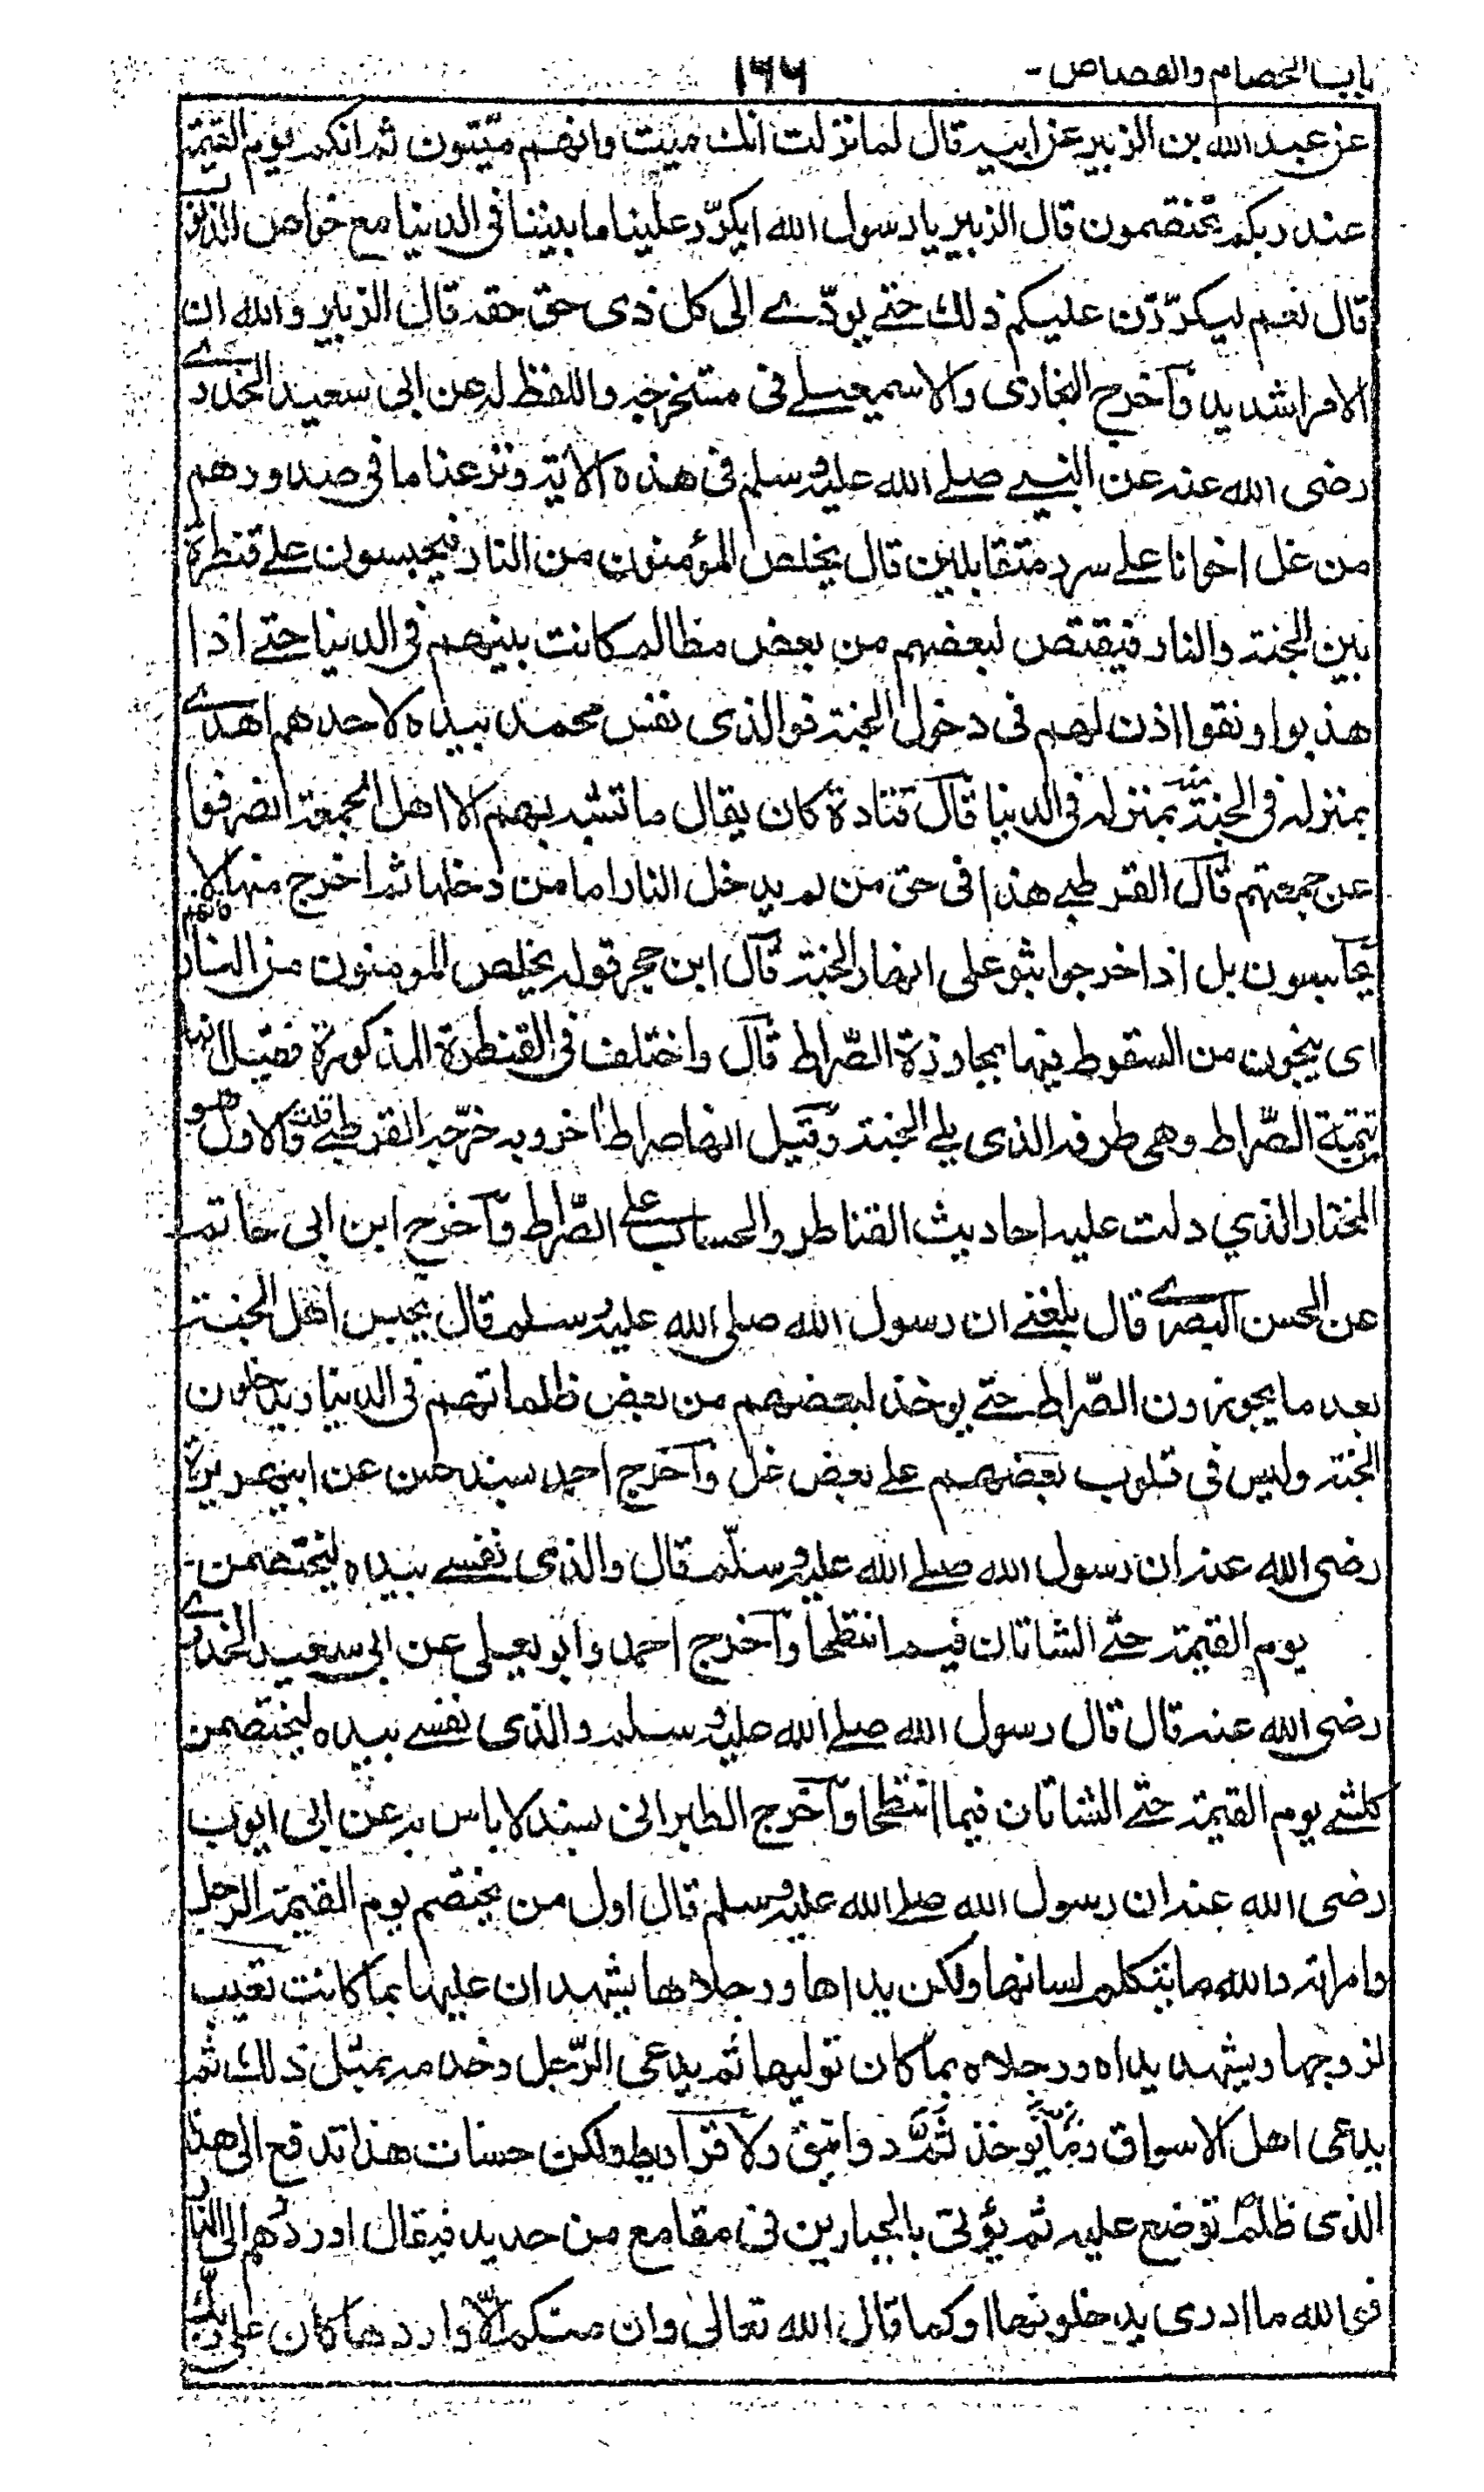 باب الخصام والقصاص - ١٦٦
عن عبد الله بن الزبير عن ابيه قال لما نزلت انك ميت وانهم ميّتون ثم انكم يوم القيمة
عند ربكم تختصمون قال الزبير يا رسول الله ايكرّر علينا ما بيننا فى الدنيا مع خواص الذنوب
قال نعم ليكرّرن عليكم ذلك حتے يودّے الى كل ذى حق حقه قال الزبير والله ان
الامر اشديد وآخرج البخارى والاسمعيلے فى مستخرجه واللفظ له عن ابى سعيد الخدرے
رضى الله عنه عن النبے صلے الله عليه وسلم فى هذه الاية ونزعنا ما فى صدورهم
من غل اخوانا علے سرر متقابلين قال يخلص المؤمنون من النار فيحبسون علے قنطرة
بين الجنة والنار فيقتص لبعضهم من بعض مظالم كانت بينهم فى الدنيا حتے اذا
هذبوا ونقوا اذن لهم فى دخول الجنة فوالذى نفس محمد بيده لاحدهم اهدے
بمنزله فى الجنة منه بمنزله فى الدنيا قآل قتادة كان يقال ما تشبه بهم الا اهل الجمعة انصرفوا
عن جمعتهم قآل القرطبے هذا فى حق من لم يدخل النار اما من دخلها ثم اخرج منها لا فانهم
يحآسبون بل اذا خرجوا بثو على انهار الجنة قآل ابن حجر قوله يخلص المومنون من النار
اى ينجون من السقوط فيها بمجاوزة الصّراط قآل واختلف فى القنطرة المذكورة فقيل انها
تتمة الصّراط وهى طرفه الذى يلے الجنة وقيل انها صراط اخر وبه خرّجه القرطبے قلت والاول هو
المختار الذي دلت عليه احاديث القناطر والحساب علے الصّراط وآخرج ابن ابى حاتم
عن الحسن البصرے قال بلغنے ان رسول الله صلى الله عليه وسلم قال يحبس اهل الجنة
بعد ما يجوزون الصّراط حتے يوخذ لبعضهم من بعض ظلماتهم فى الدنيا ويدخلون
الجنة وليس فى قلوب بعضهم علے بعض غل وآخرج احمد بسند حسن عن ابيهريرة
رضى الله عنه ان رسول الله صلے الله عليه وسلّم قال والذى نفسے بيده ليختصمن
يوم القيمة حتے الشاتان فيما انتطحا وآخرج احمد وابو يعلى عن ابى سعيد الخدرے
رضى الله عنه قال قال رسول الله صلے الله عليه وسلم والذى نفسے بيده ليختصمن
كلشے يوم القيمة حتے الشاتان فيما انتطحا وآخرج الطبرانى بسند لا باس به عن ابى ايوب
رضى الله عنه ان رسول الله صلے الله عليه وسلم قال اول من يختصم يوم القيمة الرجل
وامراته والله ما يتكلم لسانها ولكن يداها ورجلاها يشهدان عليها بما كانت تغيب
لزوجها ويشهد يداه ورجلاه بما كان توليها ثم يدعى الرّجل وخدمه بمثل ذلك ثم
يدعى اهل الاسواق وما يوخذ ثَمّ دوانيق ولا قراريط ولكن حسنات هذا تدفع الى هذا
الذى ظلم توضع عليه ثم يؤتى بالجبارين فى مقامع من حديد فيقال اوردهم الى النار
فوالله ما ادرى يدخلونها او كما قال الله تعالى وان منكم الّا واردها كان على ربك